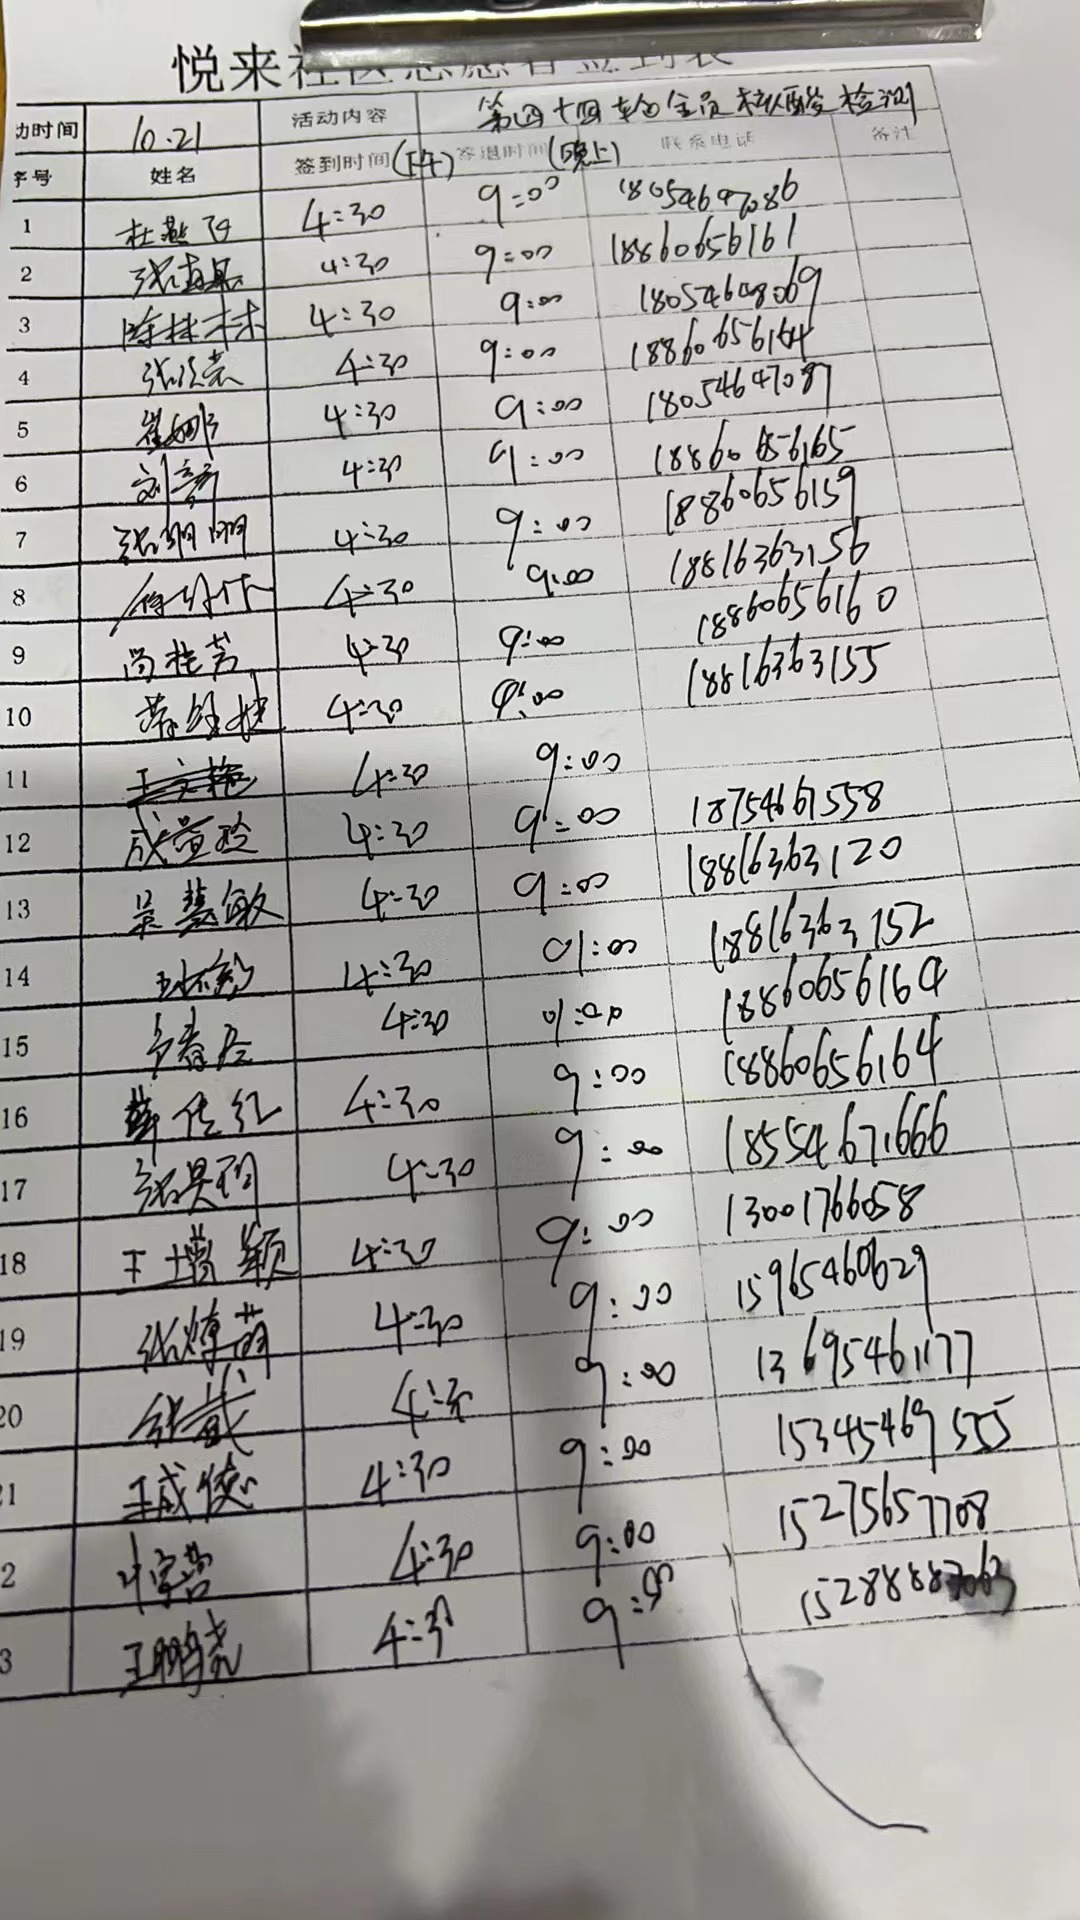 悦来社区志愿者签到表
动时间 10.21 活动内容 第四十四轮全员核酸检测
序号 姓名 签到时间(下午) 签退时间(晚上) 联系电话 备注
1 杜燕 4:30 9:00 18054647086
2 4:30 9:00 18860656161
3 陈林林 4:30 9:00 18054608069
4 4:30 9:00 18860656164
5 崔娜 4:30 9:00 18054647087
6 刘彦 4:30 9:00 18860656165
7 张明明 4:30 9:00 18860656159
8 4:30 9:00 18816363156
9 尚桂芳 4:30 9:00 18860656160
10 4:30 9:00 18816363155
11 王文艳 4:30 9:00
12 成萱珍 4:30 9:00 18754661558
13 吴慧敏 4:30 9:00 18816363120
14 4:30 9:00 18816363152
15 4:30 9:00 18860656164
16 薛佳红 4:30 9:00 18860656164
17 张昊翔 4:30 9:00 18554671666
18 王增颖 4:30 9:00 13001766058
19 张炜萌 4:30 9:00 15965460629
20 4:30 9:00 13695461177
21 王成德 4:30 9:00 15345469555
2 4:30 9:00 15275657708
3 王鹏尧 4:30 9:00